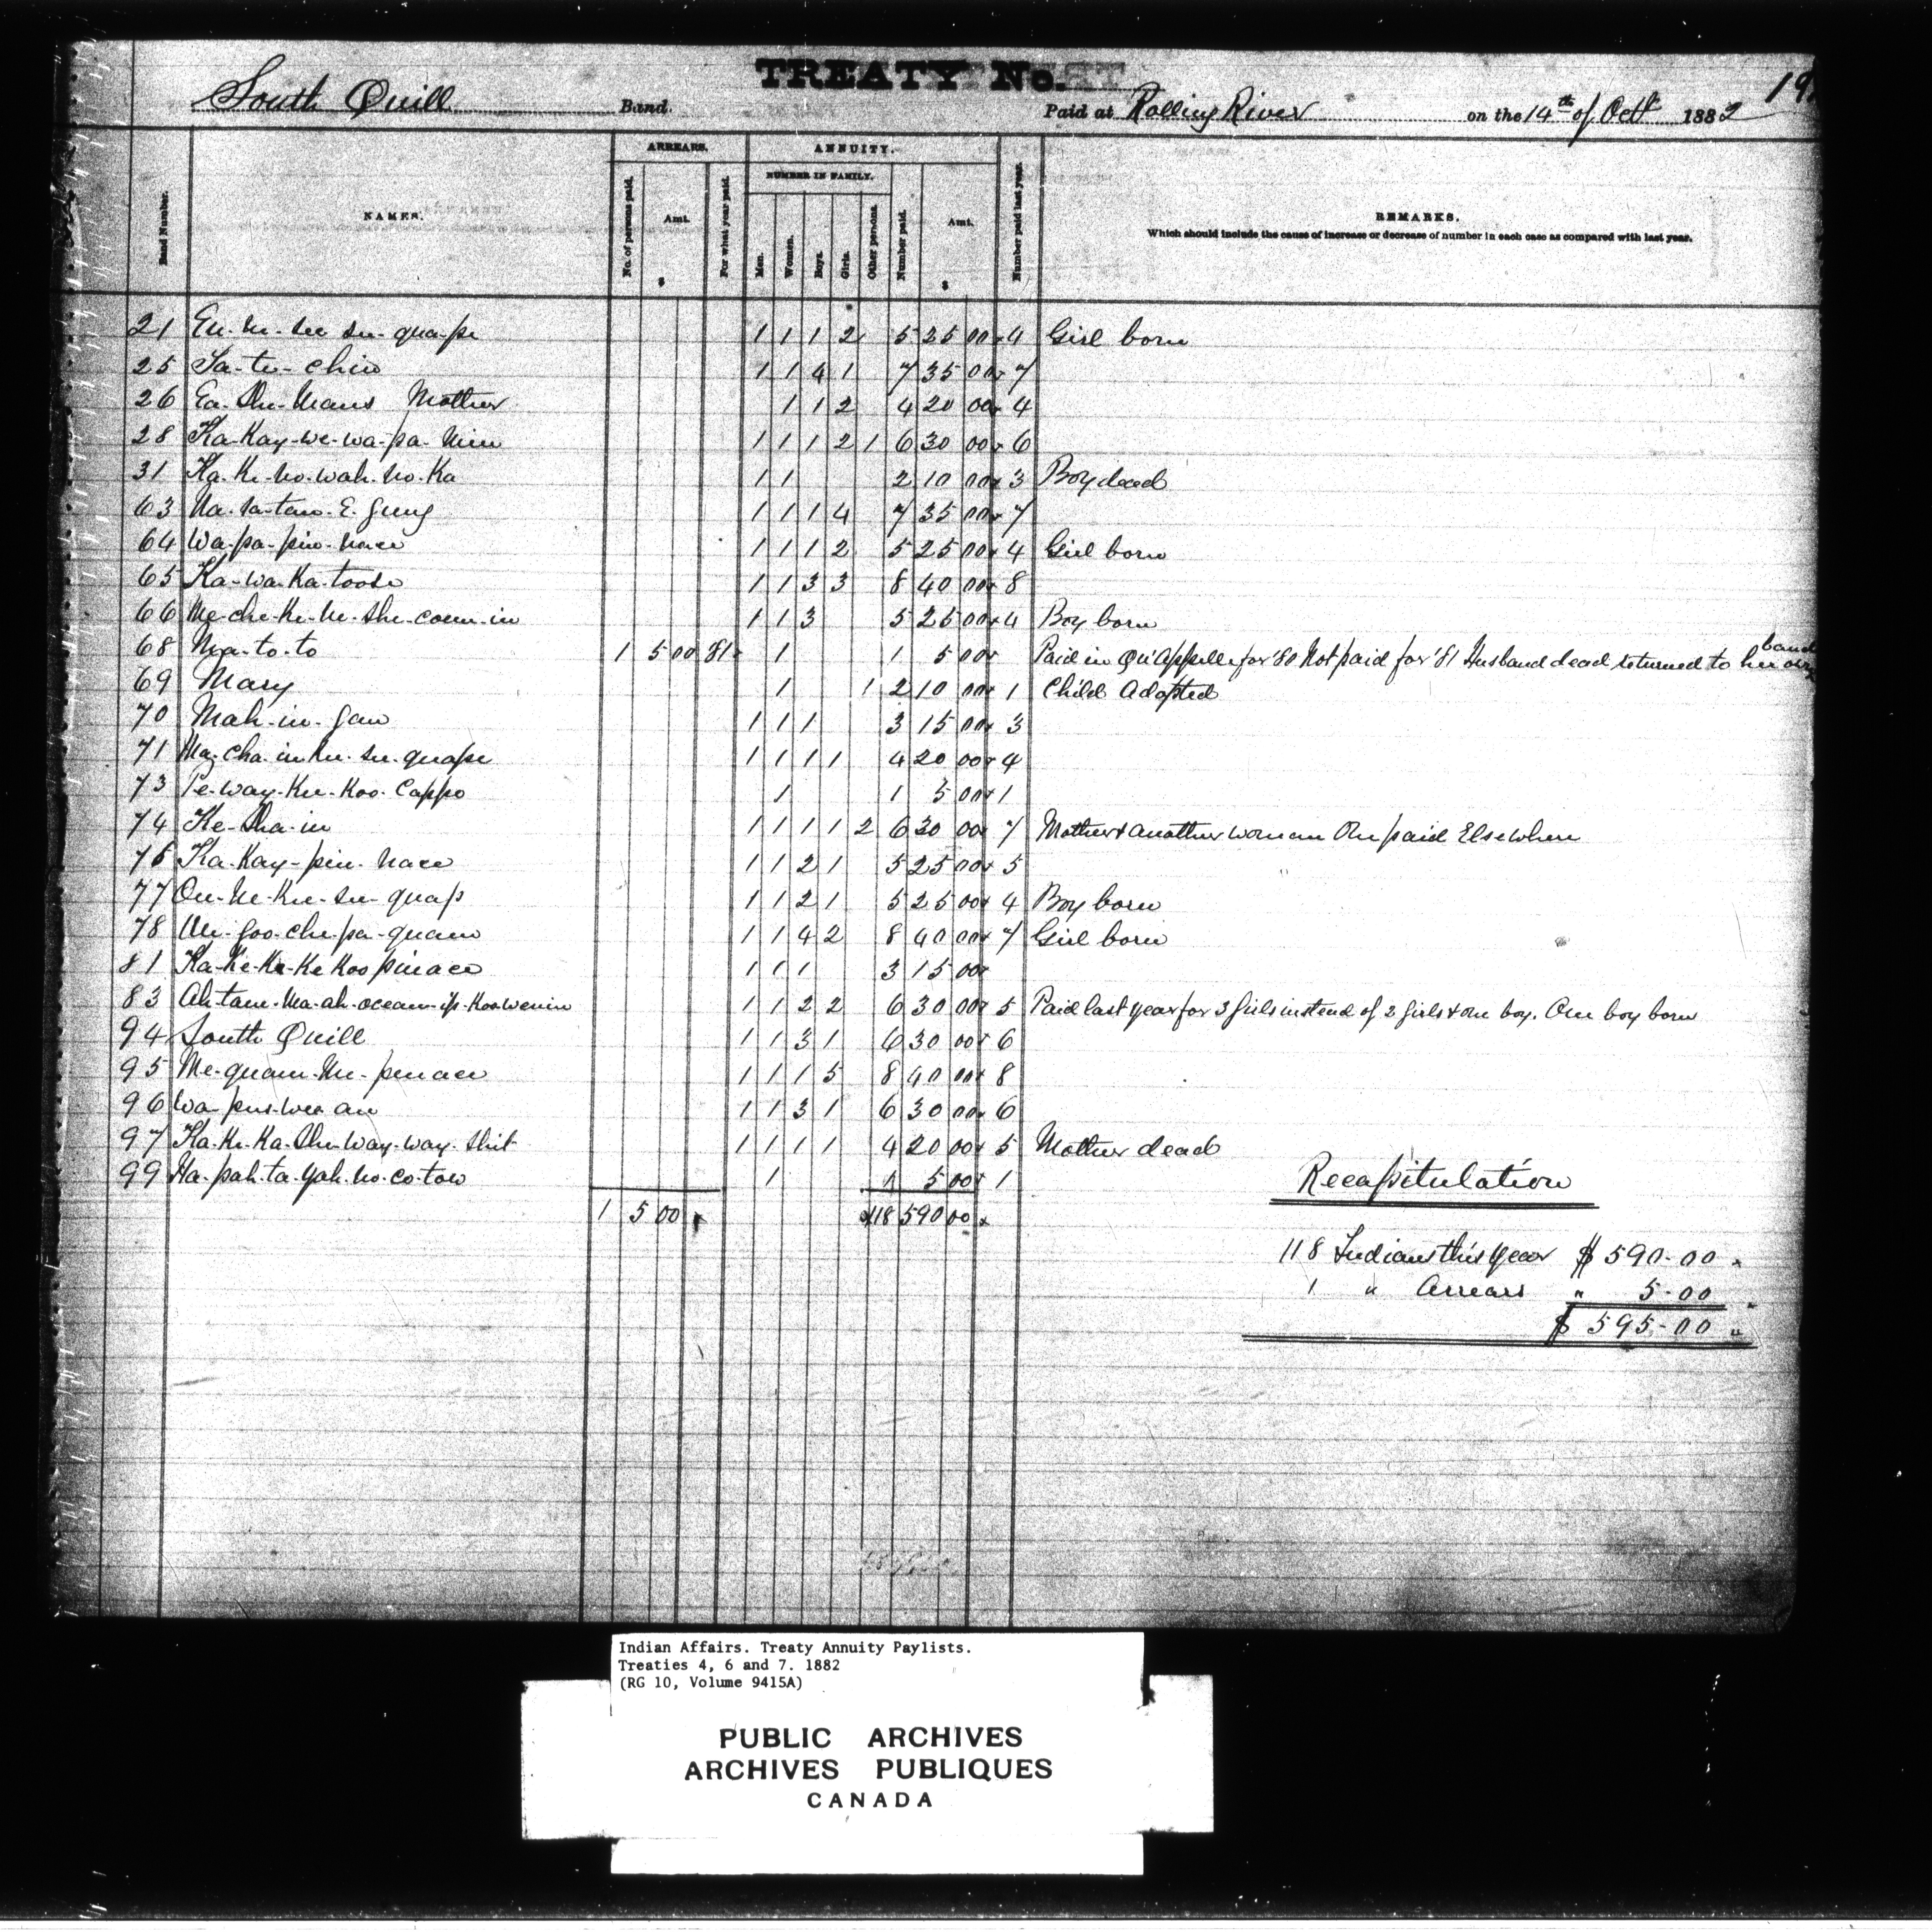 TREATY No.
19
South Quill Band. Paid at Rolling River on the 14th of Octr 1882
Band Number. NAMES. ARREARS. No. of persons paid. Amt. $ For what year paid. ANNUITY. NUMBER IN FAMILY. Men. Women. Boys. Girls. Other persons. Number paid. Amt. $ Number paid last year. REMARKS.
Which should include the cause of increase or decrease of number in each case as compared with last year.
21 1 1 1 2 5 25 00 4 Girl born
25 Ta-te-chin 1 1 4 1 7 35 00 7
26 Mother 1 1 2 4 20 00 4
28 Ka-Kay-we-wa-pa-Nim 1 1 1 2 1 6 30 00 6
31 Ka-Ke-no-wah-no-Ka 1 1 2 10 00 3 Boy dead
63 Na-ta-taw-E-Gung 1 1 1 4 7 35 00 7
64 Wa-pa-pin-nace 1 1 1 2 5 25 00 4 Girl born
65 Ka-wa-Ka-toose 1 1 3 3 8 40 00 8
66 Me-che-Ke-ne-she-coum-in 1 1 3 5 25 00 4 Boy born
68 Ma-to-to 1 5 00 81 1 1 5 00 Paid in Qu'Appelle for '80 Not paid for '81 Husband dead returned to her own band
69 Mary 1 1 2 10 00 1 Child Adopted
70 Mah-in-gan 1 1 1 3 15 00 3
71 1 1 1 1 4 20 00 4
73 Pe-way-Ku-Koo-Cappo 1 1 5 00 1
74 Ke-sha-in 1 1 1 1 2 6 30 00 7 Mother & another woman One paid Elsewhere
75 Ka-Kay-pin-nace 1 1 2 1 5 25 00 5
77 1 1 2 1 5 25 00 4 Boy born
78 1 1 4 2 8 40 00 7 Girl born
81 Ka-Ke-Ke-Ke Koo pinace 1 1 1 3 15 00
83 1 1 2 2 6 30 00 5 Paid last year for 3 girls instead of 2 girls & one boy. One boy born
94 South Quill 1 1 3 1 6 30 00 6
95 Me-quam-Me-penace 1 1 1 5 8 40 00 8
96 1 1 3 1 6 30 00 6
97 Ka-Ke-Ka-She-Way-way-Shit 1 1 1 1 4 20 00 5 Mother dead
99 Ha-pah-ta-yah-no-co-tow 1 1 5 00 1
1 5 00 118 590 00
Recapitulation
118 Indians this year $ 590-00
1 " Arrears " 5-00
$ 595-00
Indian Affairs. Treaty Annuity Paylists.
Treaties 4, 6 and 7. 1882
(RG 10, Volume 9415A)
PUBLIC ARCHIVES
ARCHIVES PUBLIQUES
CANADA